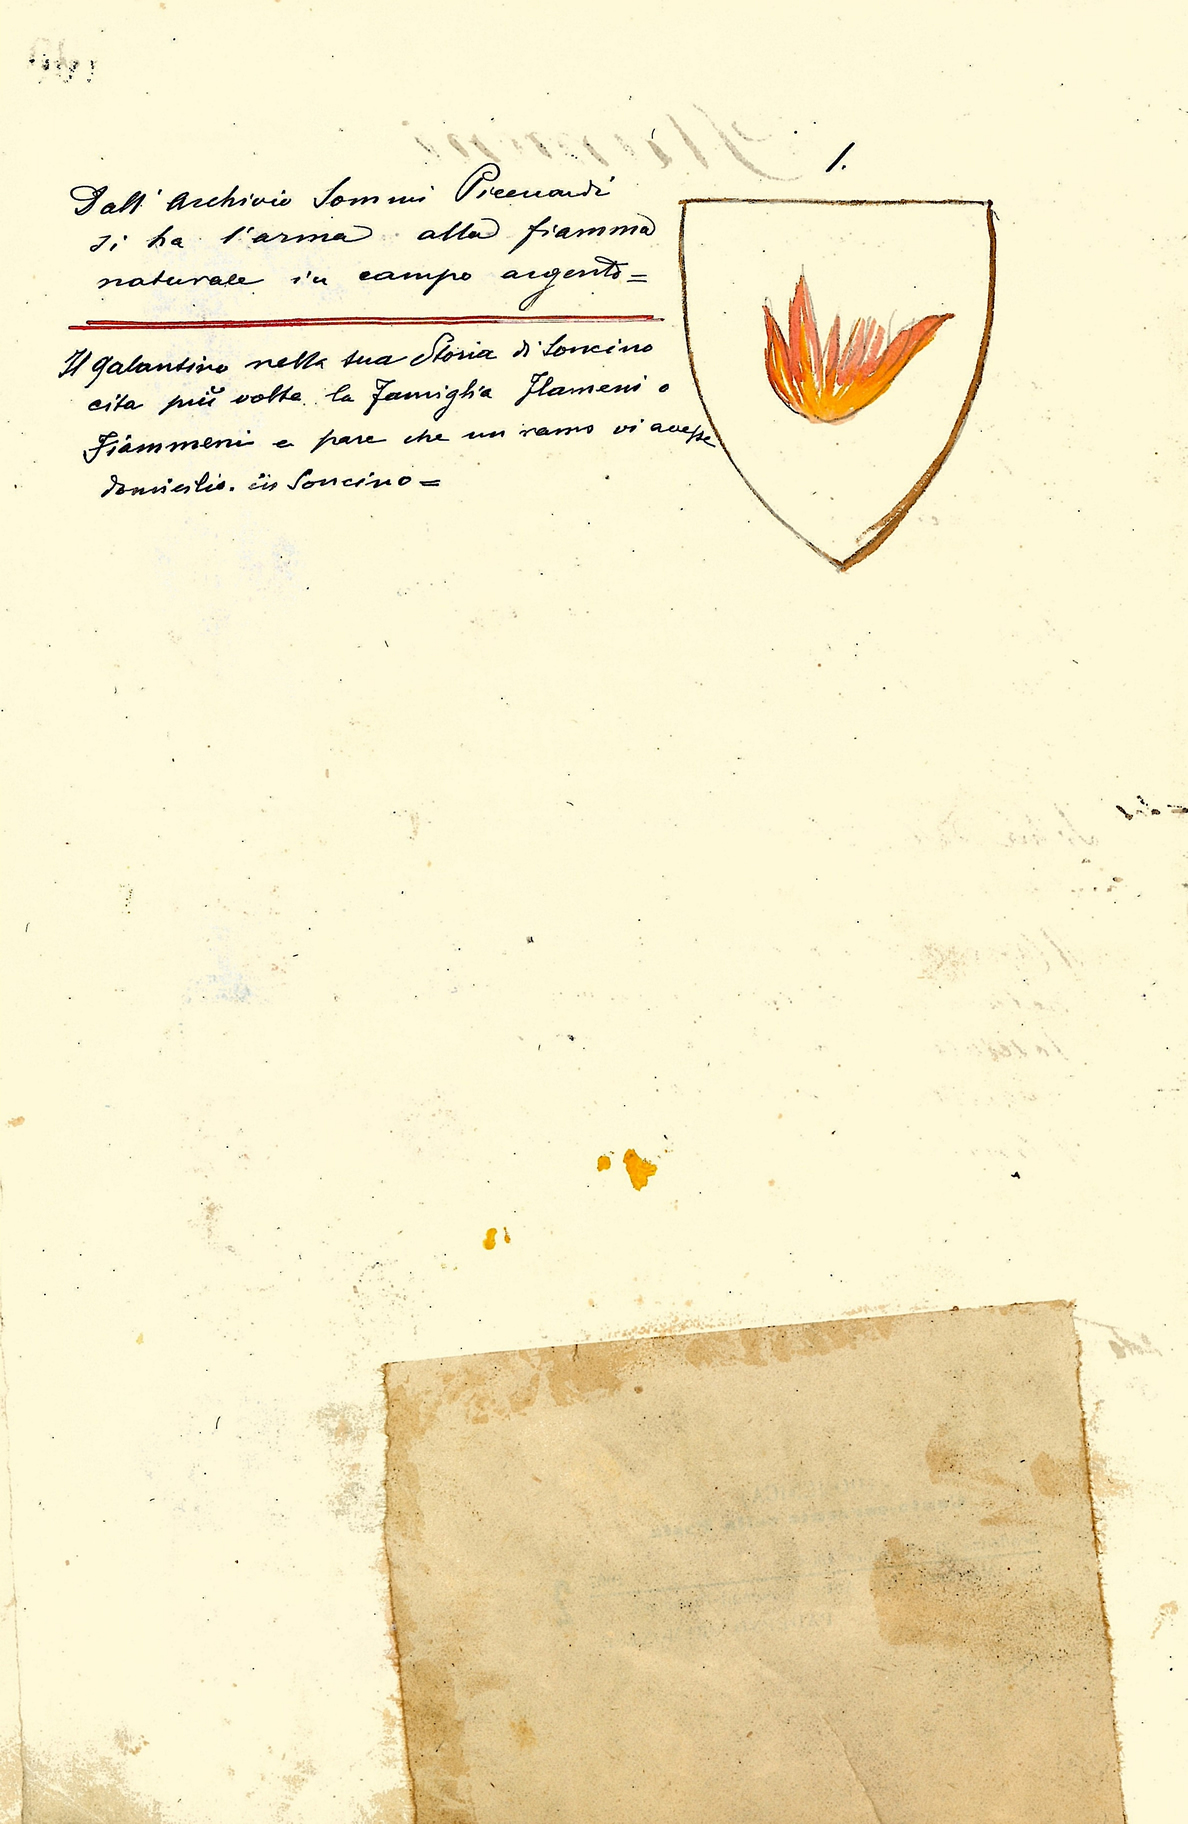 1.
Dall' Archivio Sommi Picenardi
si ha l'arma alla fiamma
naturale in campo argento=
Il Galantino nella sua Storia di Soncino
cita più volte la Famiglia Flameni o
Fiammeni e pare che un ramo vi avesse
domicilio. in Soncino=